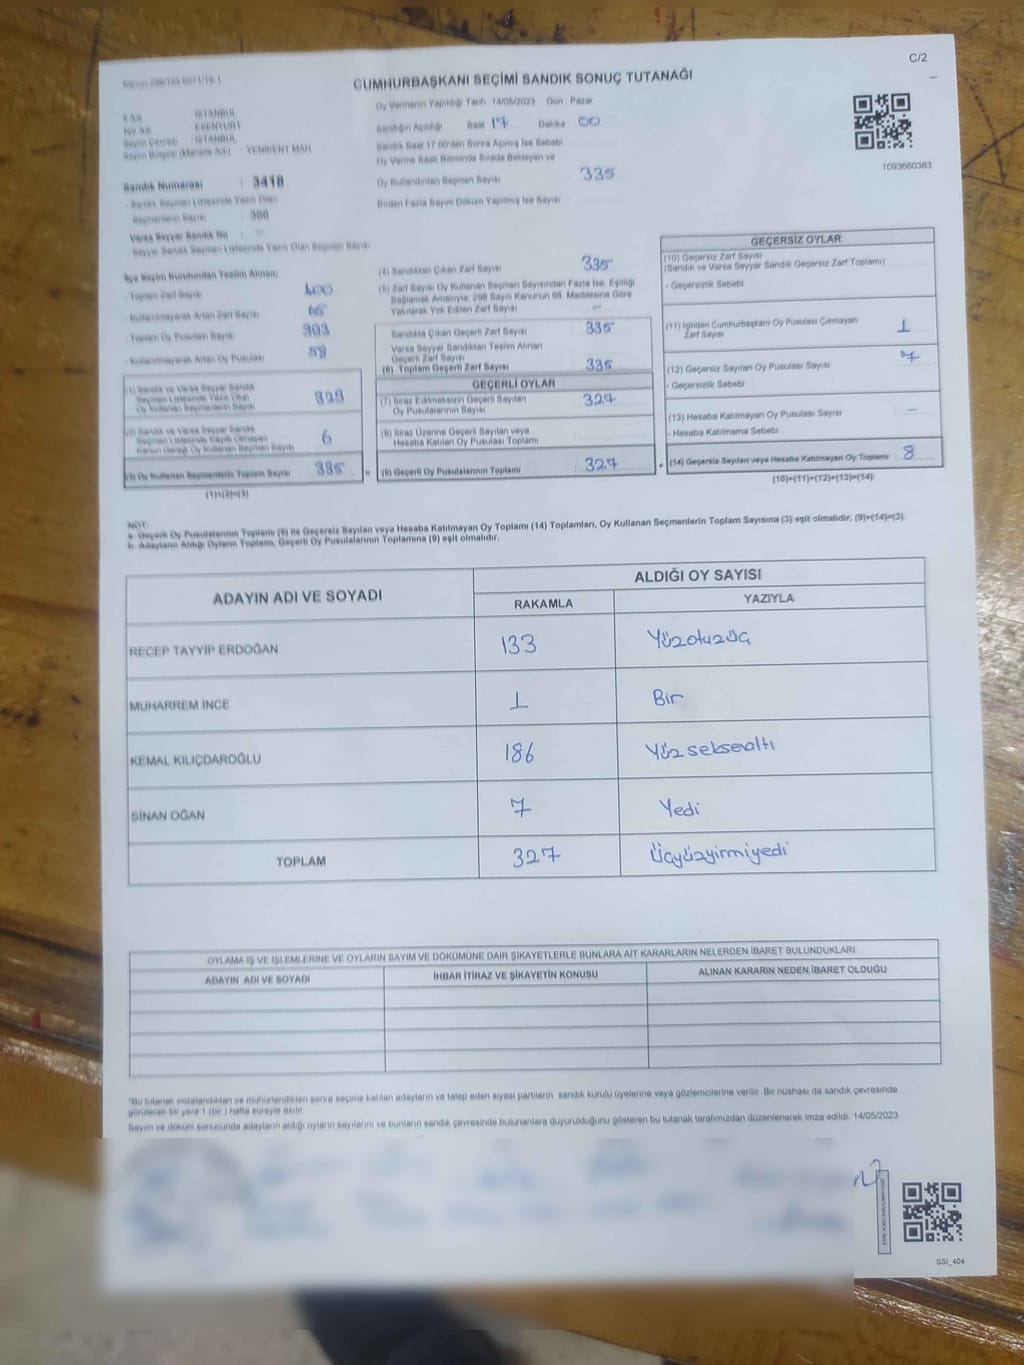 C/2
CUMHURBAŞKANI SEÇİMİ SANDIK SONUÇ TUTANAĞI
Oy Vermenin Yapıldığı Tarih 14/05/2023 Gün : Pazar
İl Adı : İSTANBUL
İlçe Adı : ESENYURT
Seçim Çevresi : İSTANBUL
Seçim Bölgesi (Mahalle Adı) : YENİKENT MAH
Sandığın Açıldığı Saat 17 Dakika 00
Sandık Saat 17.00'den Sonra Açılmış İse Sebebi
Oy Verme Saati Bitiminde Sırada Bekleyen ve
Oy Kullandırılan Seçmen Sayısı 335
Birden Fazla Sayım Döküm Yapılmış İse Sayısı
1093660383
Sandık Numarası : 3418
- Sandık Seçmen Listesinde Yazılı Olan
Seçmenlerin Sayısı
Varsa Seyyar Sandık No : -
- Seyyar Sandık Seçmen Listesinde Yazılı Olan Seçmen Sayısı
İlçe Seçim Kurulundan Teslim Alınan;
- Toplam Zarf Sayısı 400
- Kullanılmayarak Artan Zarf Sayısı 65
- Toplam Oy Pusulası Sayısı
- Kullanılmayarak Artan Oy Pusulası
(1) Sandık ve Varsa Seyyar Sandık
Seçmen Listesinde Yazılı Olup
Oy Kullanan Seçmenlerin Sayısı 329
(2) Sandık ve Varsa Seyyar Sandık
Seçmen Listesinde Kaydı Olmayan
Kanun Gereği Oy Kullanan Seçmen Sayısı 6
(3) Oy Kullanan Seçmenlerin Toplam Sayısı 335
(1)+(2)=(3)
(4) Sandıktan Çıkan Zarf Sayısı 335
(5) Zarf Sayısı Oy Kullanan Seçmen Sayısından Fazla İse, Eşitliği
Sağlamak Amacıyla, 298 Sayılı Kanunun 98. Maddesine Göre
Yakılarak Yok Edilen Zarf Sayısı -
Sandıkta Çıkan Geçerli Zarf Sayısı 335
Varsa Seyyar Sandıktan Teslim Alınan
Geçerli Zarf Sayısı
(6) Toplam Geçerli Zarf Sayısı 335
GEÇERLİ OYLAR
(7) İtiraz Edilmeksizin Geçerli Sayılan
Oy Pusulalarının Sayısı 327
(8) İtiraz Üzerine Geçerli Sayılan veya
Hesaba Katılan Oy Pusulası Toplamı
= (9) Geçerli Oy Pusulalarının Toplamı 327
GEÇERSİZ OYLAR
(10) Geçersiz Zarf Sayısı
(Sandık ve Varsa Seyyar Sandık Geçersiz Zarf Toplamı)
- Geçersizlik Sebebi
(11) İçinden Cumhurbaşkanı Oy Pusulası Çıkmayan
Zarf Sayısı 1
(12) Geçersiz Sayılan Oy Pusulası Sayısı 7
- Geçersizlik Sebebi
(13) Hesaba Katılmayan Oy Pusulası Sayısı -
- Hesaba Katılmama Sebebi
+ (14) Geçersiz Sayılan veya Hesaba Katılmayan Oy Toplamı 8
(10)+(11)+(12)+(13)=(14)
NOT:
a- Geçerli Oy Pusulalarının Toplamı (9) ile Geçersiz Sayılan veya Hesaba Katılmayan Oy Toplamı (14) Toplamları, Oy Kullanan Seçmenlerin Toplam Sayısına (3) eşit olmalıdır, (9)+(14)=(3)
b- Adayların Aldığı Oyların Toplamı, Geçerli Oy Pusulalarının Toplamına (9) eşit olmalıdır.
ADAYIN ADI VE SOYADI ALDIĞI OY SAYISI
RAKAMLA YAZIYLA
RECEP TAYYİP ERDOĞAN 133 Yüzotuzüç
MUHARREM İNCE 1 Bir
KEMAL KILIÇDAROĞLU 186 Yüz seksenaltı
SİNAN OĞAN 7 Yedi
TOPLAM 327 Üçyüzyirmiyedi
OYLAMA İŞ VE İŞLEMLERİNE VE OYLARIN SAYIM VE DÖKÜMÜNE DAİR ŞİKAYETLERLE BUNLARA AİT KARARLARIN NELERDEN İBARET BULUNDUKLARI
ADAYIN ADI VE SOYADI İHBAR İTİRAZ VE ŞİKAYETİN KONUSU ALINAN KARARIN NEDEN İBARET OLDUĞU
"Bu tutanak imzalandıktan ve mühürlendikten sonra seçime katılan adayların ve talep eden siyasi partilerin sandık kurulu üyelerine veya gözlemcilerine verilir. Bir nüshası da sandık çevresinde
görülecek bir yere 1 (bir) hafta süreyle asılır
Sayım ve döküm sonucunda adayların aldığı oyların sayılarını ve bunların sandık çevresinde bulunanlara duyurulduğunu gösteren bu tutanak tarafımızdan düzenlenerek imza edildi. 14/05/2023
SSI_404